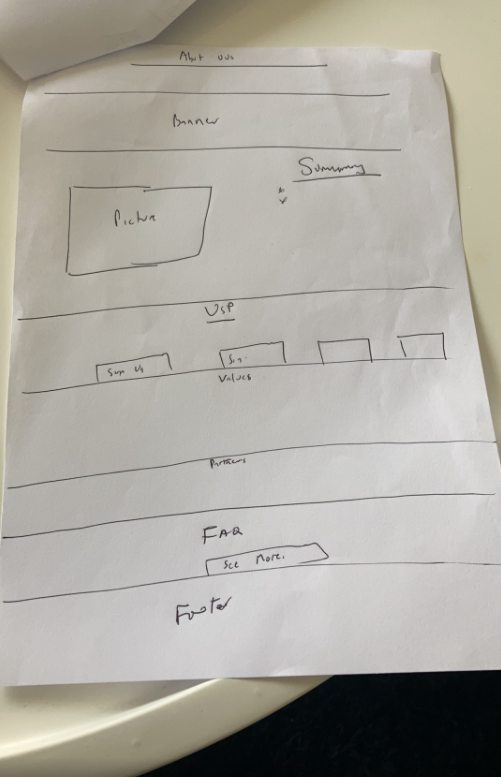 About us
Banner
Summary
Picture
USP
Values
Partners
FAQ
See More.
Footer